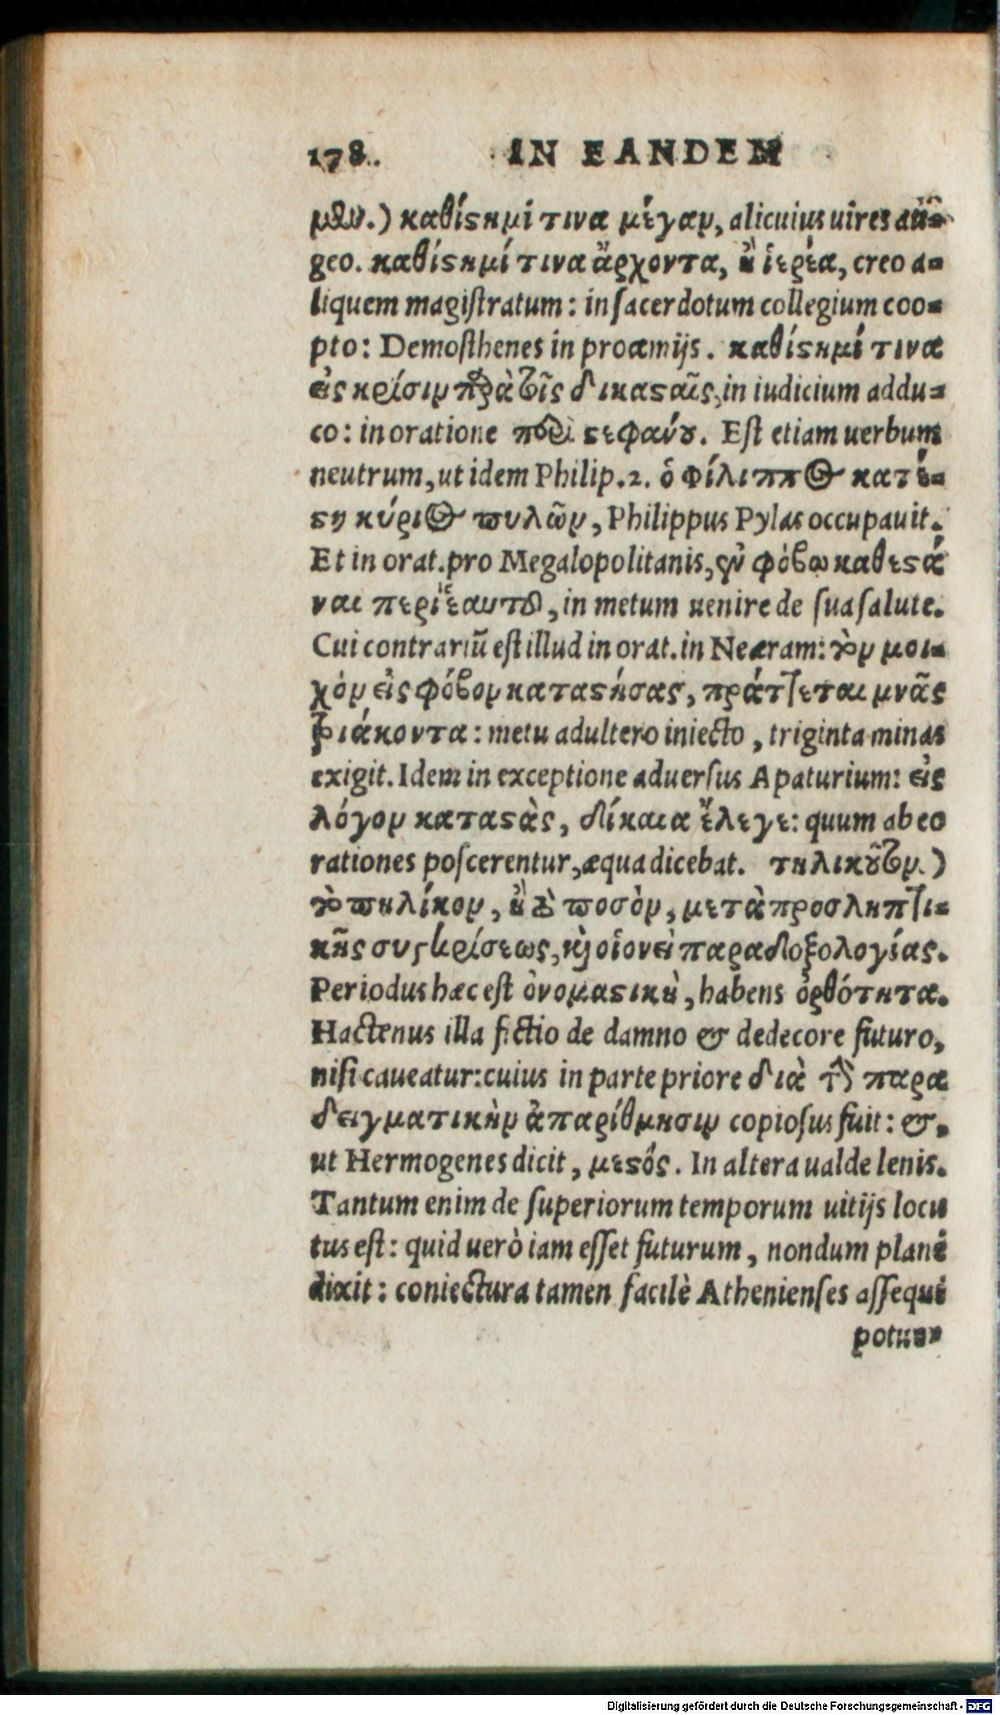 178. IN EANDEM
μῳν.) καθίστημί τινα μέγαν, alicuius uires au-
geo. καθίστημί τινα ἄρχοντα, ἢ ἱερέα, creo a-
liquem magistratum: in sacerdotum collegium coo-
pto: Demosthenes in proœmijs. καθίστημί τινα
εἰς κρίσιν πρὸς τοῖς δικασταῖς, in iudicium addu-
co: in oratione περὶ στεφάνου. Est etiam uerbum
neutrum, ut idem Philip. 2. ὁ Φίλιππος κατέ-
στη κύριος πυλῶν, Philippus Pylas occupauit.
Et in orat. pro Megalopolitanis, ἐν φόβῳ καθεστά
ναι περὶ ἑαυτοῦ, in metum uenire de sua salute.
Cui contrariū est illud in orat. in Neæram: τὸν μοι-
χὸν εἰς φόβον καταστήσας, πράττεται μνᾶς
τριάκοντα: metu adultero iniecto, triginta minas
exigit. Idem in exceptione aduersus Apaturium: εἰς
λόγον καταστὰς, δίκαια ἔλεγε: quum ab eo
rationes poscerentur, æqua dicebat. τηλικοῦτον.)
τὸ πηλίκον, ἢ τὸ ποσὸν, μετὰ προσληπτι-
κῆς συγκρίσεως, καὶ οἱονεὶ παραδοξολογίας.
Periodus hæc est ὀνομαστικὴ, habens ὀρθότητα.
Hactenus illa fictio de damno & dedecore futuro,
nisi caueatur: cuius in parte priore διὰ τὴν παρα
δειγματικὴν ἀπαρίθμησιν copiosus fuit: &,
ut Hermogenes dicit, μεστός. In altera ualde lenis.
Tantum enim de superiorum temporum uitijs locu
tus est: quid uerò iam esset futurum, nondum planè
dixit: coniectura tamen facilè Athenienses assequi
potue-
Digitalisierung gefördert durch die Deutsche Forschungsgemeinschaft - DFG